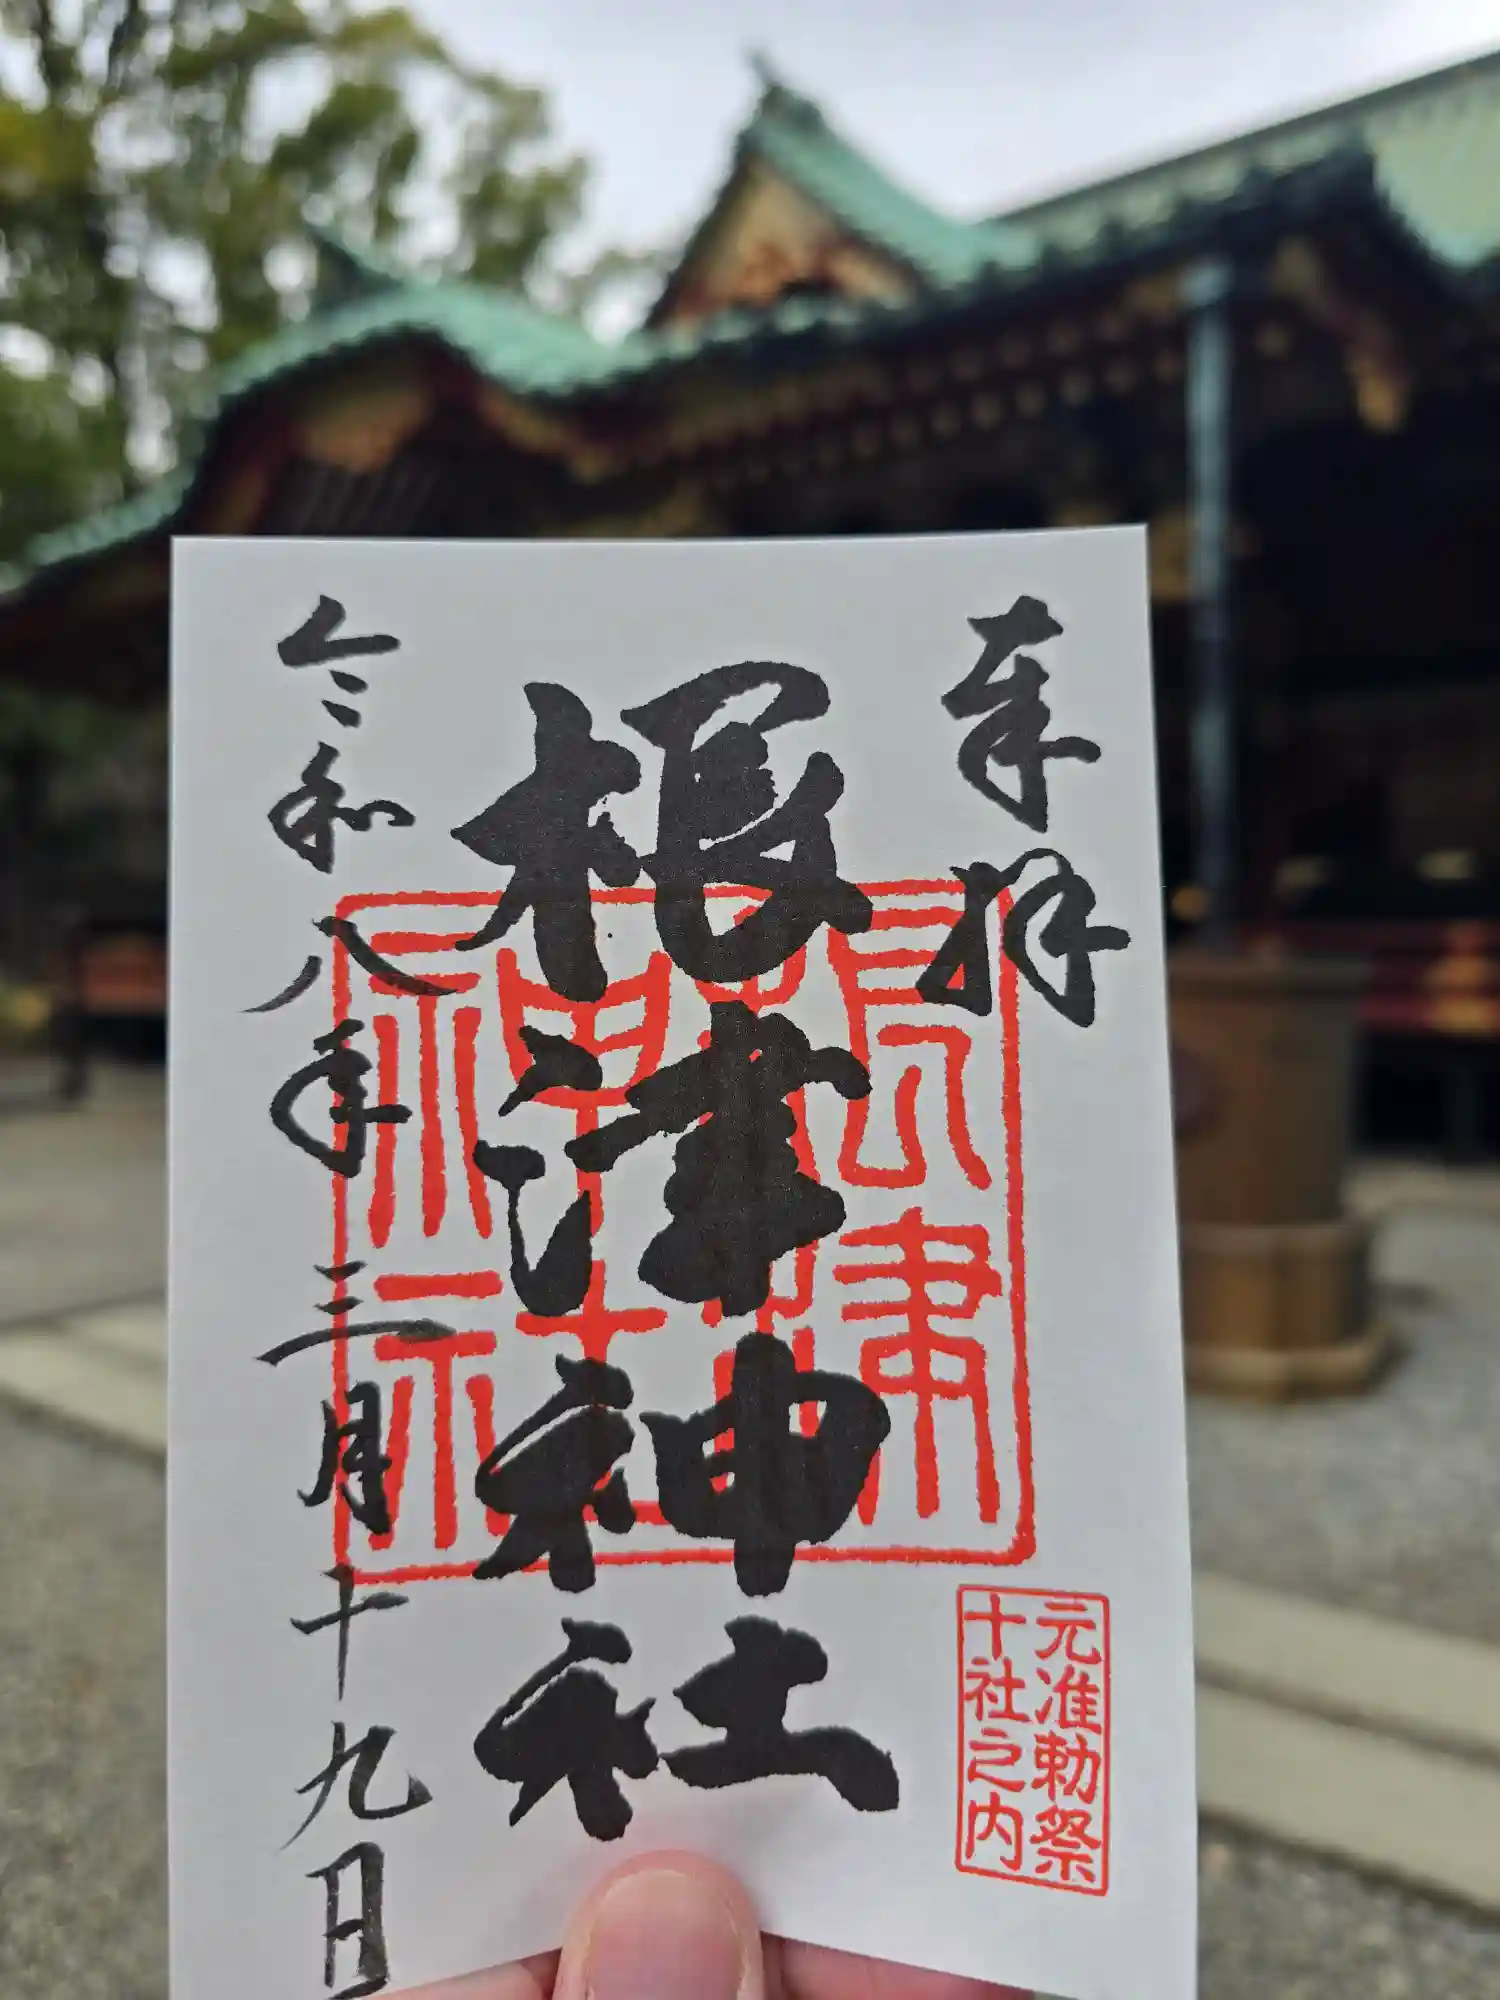 奉拝
根津神社
令和八年三月十九日
根津神社
元准勅祭
十社之内